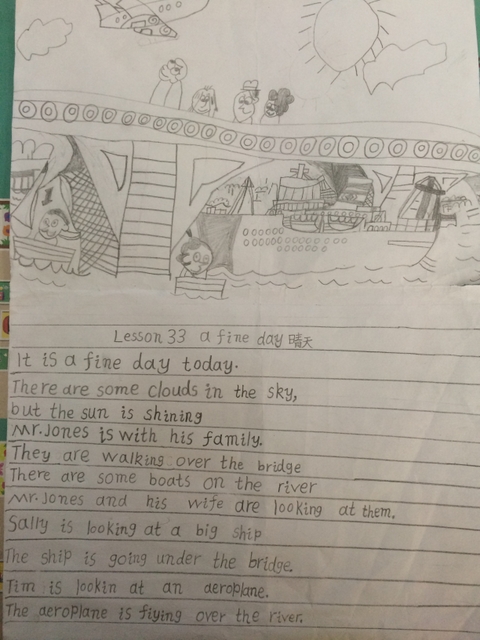 1
Lesson 33 a fine day 晴天
It is a fine day today.
There are some clouds in the sky,
but the sun is shining
Mr.Jones is with his family.
They are walking over the bridge
There are some boats on the river
Mr.Jones and his wife are looking at them.
Sally is looking at a big ship
The ship is going under the bridge.
Tim is lookin at an aeroplane.
The aeroplane is fiying over the river.